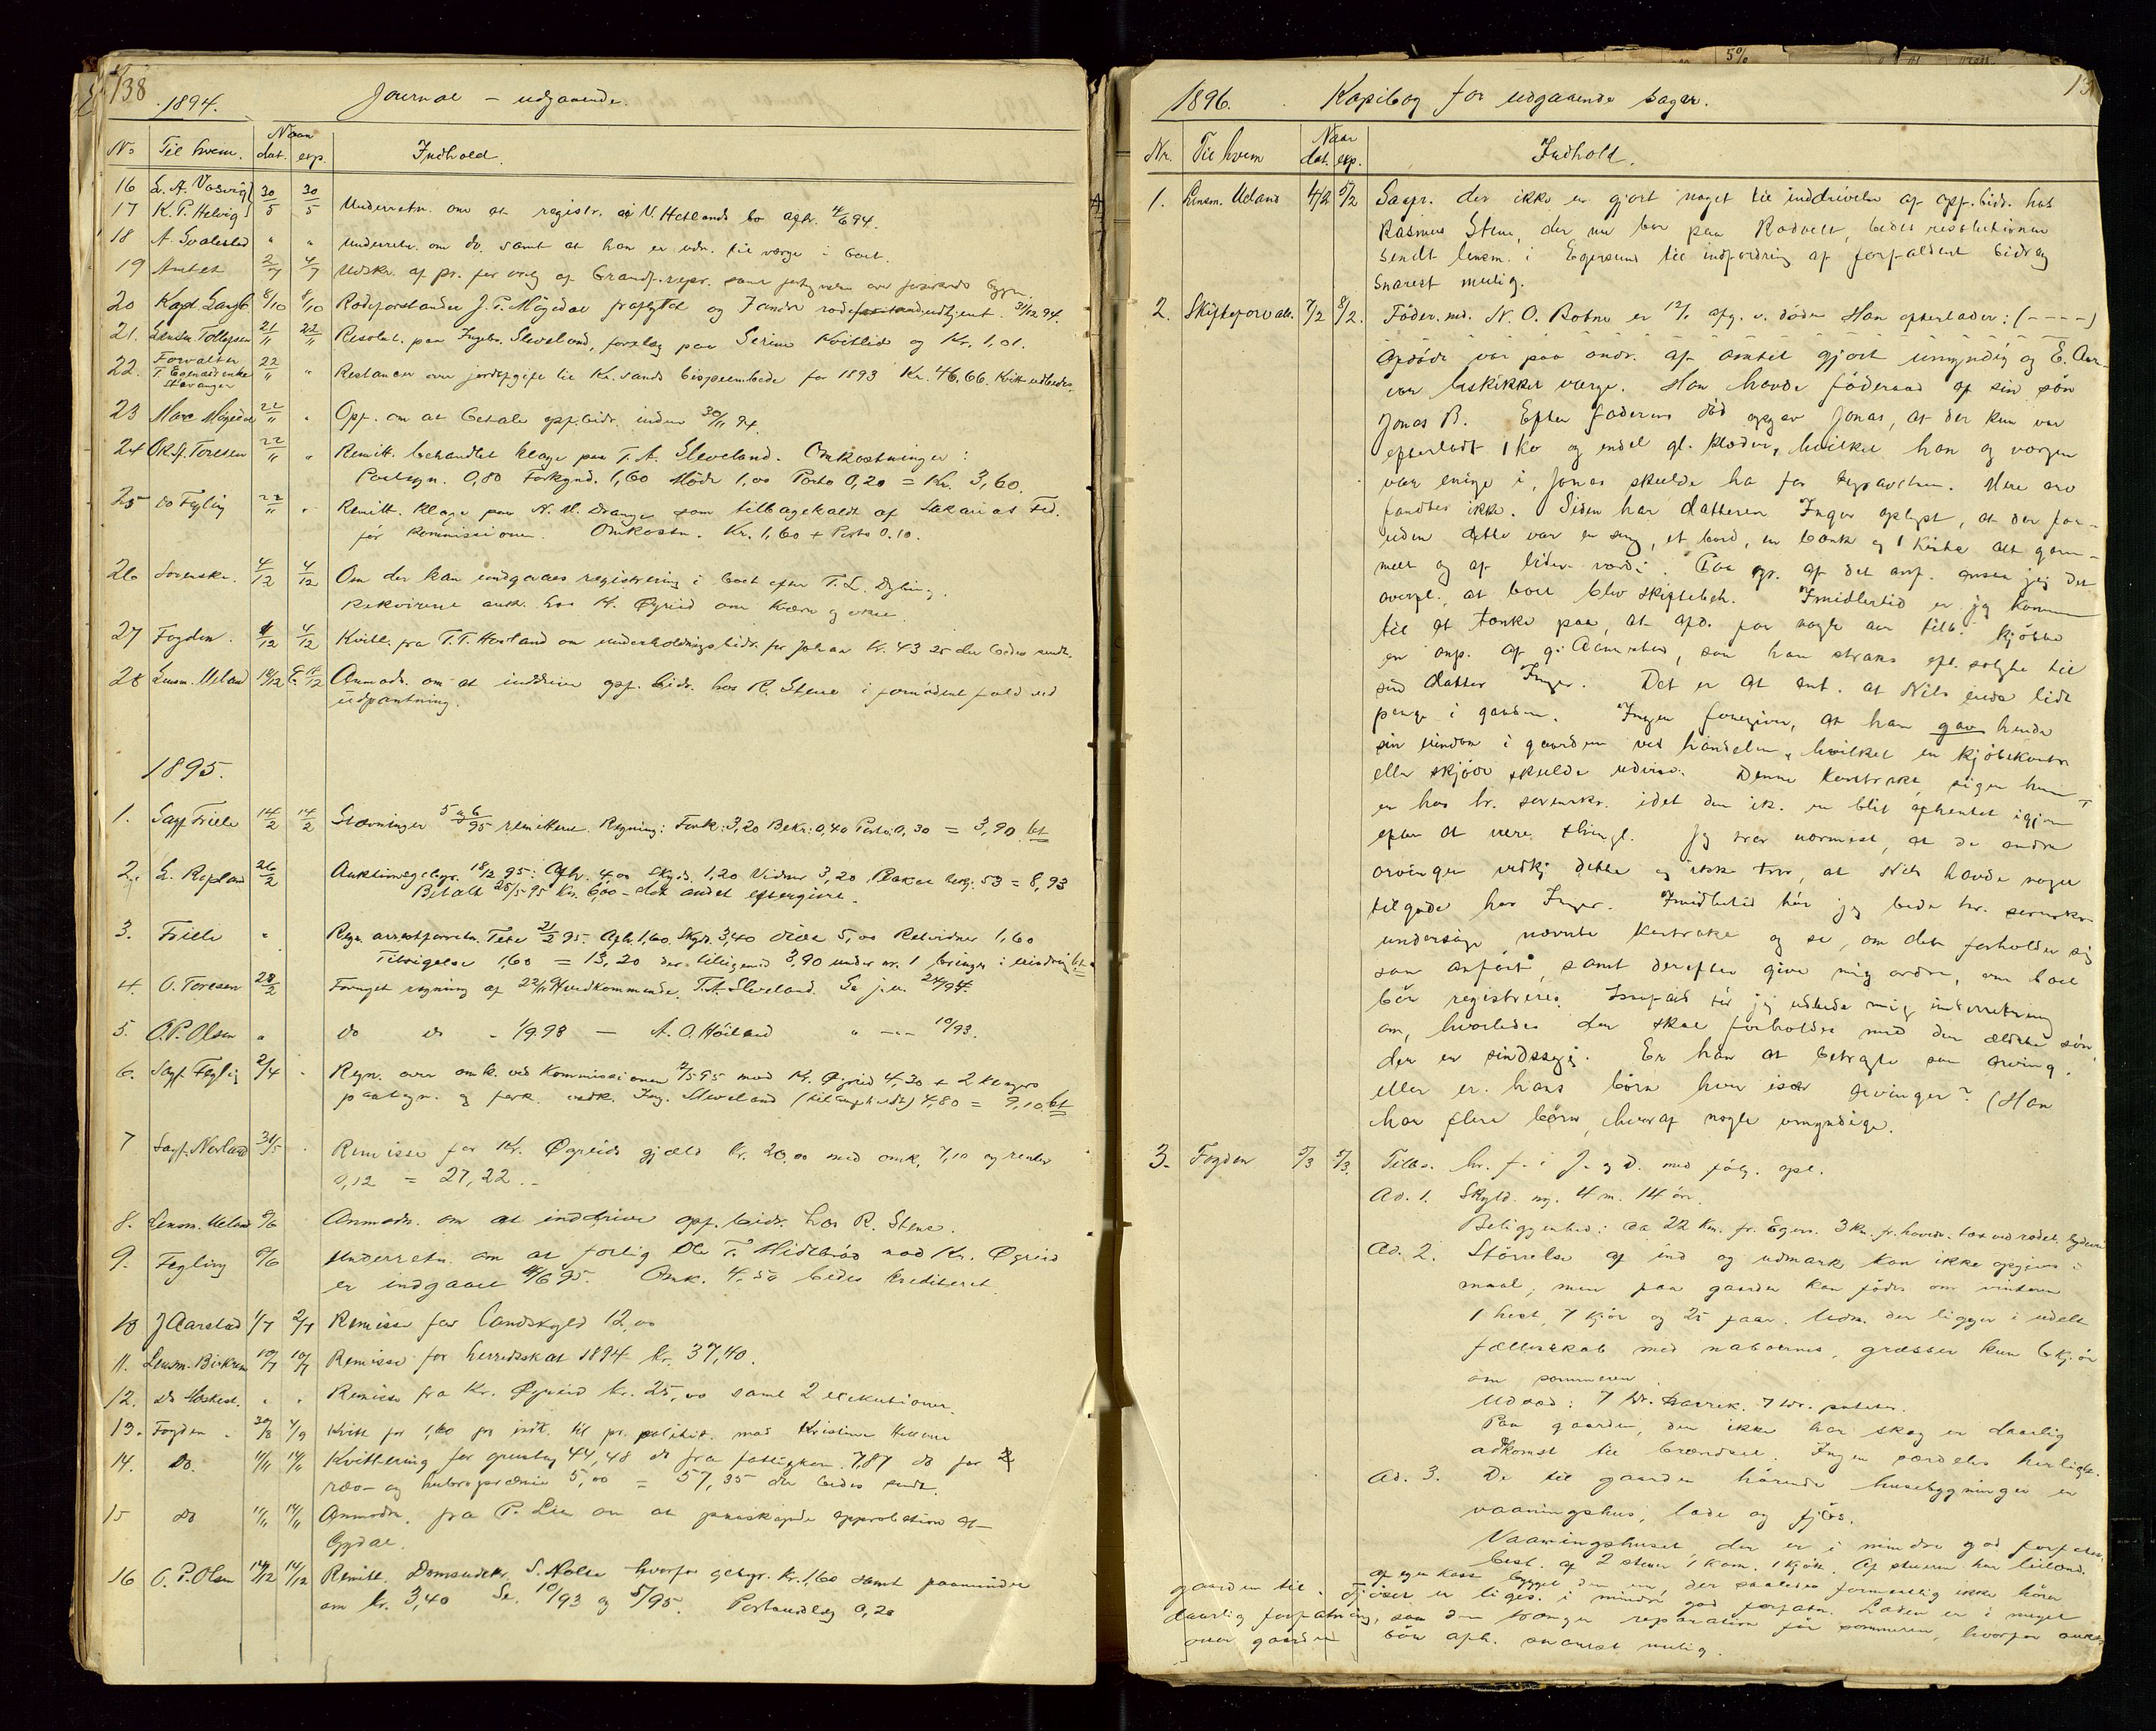 138
1894. Journal – udgaaende.
No Til hvem. Naar dat. exp. Indhold.
16 L. A. Vasvig 30/5 30/5
17 K. P. Helvig Underretn. om at registr. i N. Hetlands bo afh. 4/6 94.
18 A. Svalestad " " Underretn. om do. samt at han er udn. til værge i boet.
19 Amtet 2/7 4/7 Udskr. af pr. for valg af Brandf.repr. samt
20 Kapt. 8/10 8/10 Rodeforstander J. P. Mögedal fraflyttet og rode udtjent. 31/12 94.
21. Lensm. Tollefsen 21/11 22/11 Resolut. paa Ingebr. Sleveland, forelæg paa Serine Kvitlid og Kr. 1,01.
22. Forvalter
T. Egenæs enke
Stavanger 22/11 " Restancer over jordafgift til Kr.sands bispeembede for 1893 Kr. 46,66. Kvitt. udbedes.
23 Mögedal 22/11 " Opf. om at betale opf.bidr. inden 30/11 94.
24 O.K.sf. Toresen 22/11 " Remitt. behandlet klage paa T. A. Sleveland. Omkostninger:
Paategn. 0,80 Forkynd. 1,60 Möde 1,00 Porto 0,20 = Kr. 3,60.
25 do Fegling 22/11 " Remitt. klage paa N. N. Drange som tilbagekaldt af Sakarias Fed.
för kommissionen. Omkostn. Kr. 1,60 + Porto 0,10.
26 Sorenskr. 4/12 4/12 Om der kan undgaaes registrering i boet efter T. L. Dybing.
Rekvirent ank. hos K. Øgreid om
27 Fogden. 4/12 4/12 Kvitt. fra T. T. Hovland om underholdningsbidr. for Johan kr. 43 25 der bedes sendt.
28 Lensm. Ueland 14/12 15/12 Anmodn. om at inddrive opf. bidr. hos R. Stene i fornödent fald ved
udpantning.
1895.
1. Sagf. Friele 14/2 14/2 Stævninger 5 og 6/95 remitteres. Regning: Fork: 3,20 Bekr: 0,40 Porto: 0,30 = 3,90. bet
2. L. Repland 26/2 Auktionsgebyr. 18/2 95: Afh. 4,00 Skyds. 1,20 Vidner 3,20 Plakat bekj. 53 = 8,93
Betalt 25/5 95 Kr. 6,00 – det andet eftergivet.
3. Friele " Regn. arrestforretn. Tete 21/2 95. Afh. 1,60. Skyds. 3,40 Diæt 5,00 Retsvidner 1,60
Tilsigelse 1,60 = 13,20 der tilligemed 3,90 under nr. 1 bringes i erindring bet
4. O. Toresen 28/2 Fornyet regning af 22/11 94 vedkommende T. A. Sleveland. Se j.n. 24/94.
5. O. P. Olsen " do do " 1/9 93 – A. O. Höiland " –"– 10/93.
6. Sagf. Fegling 2/4 " Regn. over omk. ved kommissionen mod Kr. Øgreid 4,30 + 2 klagers
paategn. og fork. vedk. Ing. Sleveland (tilbagekaldt) 4,80 = 9,10. bet
7 Sagf. Norland 31/5 " Remisse for Kr. Øgreids gjæld kr. 20,00 med omk. 7,10 og renter
0,12 = 27,22. –
8. Lensm. Ueland 5/6 Anmodn. om at inddrive opf. bidr. hos R. Stene.
9. Fegling 5/6 Underretn. om at forlig Ole T. Midtbröd mod Kr. Øgreid
er indgaaet 4/6 95. Omk. 4.50 bedes krediteret.
10 J Aarstad 1/7 2/7 Remisse for landskyld 12,00
11. Lensm. Birkrem 10/7 10/7 Remisse for herredsskat 1894 kr. 37,40.
12. Do " " Remisse fra Kr. Øgreid kr. 25,00 samt 2 eksekutioner.
13. Fogden. 30/8 4/9 Kvitt for 1,60 for indk. til pr. politiret. mod Kristine
14. Do. 11/11 14/11 Kvittering for grundtag 44,48 do fra fattigkom. 7,87 do for 2
ræv- og hubropræmie 5,00 = 57,35 der bedes sendt.
15 do 11/11 14/11 Anmodn. fra P. Lie om at paaskynde approbation af
Gydal.
16 O. P. Olsen 14/12 14/12 Remitt. Domsudskr. S. hvorfor gebyr. kr. 1,60 samt paaminder
om kr. 3,40 Se. 10/93 og 5/95. Portoudlæg 0,20
1896. Kopibog for udgaaende sager.
Nr. Til hvem Naar dat. exp. Indhold.
1. Lensm. Ueland 4/2 5/2 Saafr. der ikke er gjort noget til inddrivelse af opf.bidr. hos
Rasmus Stene, der nu bor paa Rodvelt, bedes resolutionen
sendt lensm. i Egersund til indfordring af forfaldent bidrag
snarest mulig.
2. Skifteforvalt. 7/2 8/2. Föder.md. N. O. Botne er 12/1 afg. v. döden Han efterlader: (– – – –)
Afdöde var paa andr. af amtet gjort umyndig og E.
var beskikket værge. Han havde föderaad af sin sön
Jonas B. Efter faderens död opgav Jonas, at der kun var
efterladt 1 ko og endel gl. klæder, hvilket han og værgen
var enige i, Jonas skulde ha for begravelsen. Mere arv
fandtes ikke. Siden har datteren Inger oplyst, at der for-
uden dette var en seng, et bord, en bænk og 1 kiste alt gam-
melt og af liden værdi. Paa gr. af det anf. anser jeg det
overfl., at boet blev skiftebeh. Imidlertid er jeg kommen
til at tænke paa, at afd. for nogle aar tilb. kjöbte
en anp. af g: , som han straks eft. solgte til
sin datter Inger. Det er at ant. at Nils endda lidt
penge i gaarden. Inger foregiver, at han gav hende
sin eiendom i gaarden ved handelen, hvilket en kjöbekontr.
eller skjöde skulde udvise. Denne kontrakt, siger hun,
er hos hr. sorenskr. idet den ik. er blit afhentet igjen
efter at være thingl. Jeg tror nærmest, at de andre
arvinger vedkj. dette og ikke tror, at Nils havde noget
tilgode hos Inger. Imidlertid bör jeg bede hr. sorenskr.
undersöge nævnte kontrakt og se, om det forholder sig
som anfört, samt derefter give mig ordre, om boet
bör registreres. Isaafald bör jeg udbede mig underretning
om, hvorledes der skal forholdes med den ældste sön,
der er sindssyg. Er han at betragte som arving,
eller er hans börn hver især arvinger? (Han
har flere börn, hvoraf nogle umyndige.
3. Fogden 5/3 5/3. Tilbs. hr. f. i J. og D. med fölg. opl.
Ad. 1. Skyld. ny. 4 m. 14 öre.
Beliggenhed: ca 22 km. fr. Egers. 3 km. fr. hovedv. tæt ved rodel. bygdevei
Ad. 2. Störrelse af ind og udmark kan ikke opgives i
maal, men paa gaarden kan födes om vinteren
1 hest, 7 kjör og 25 faar. Udm. der ligger i udelt
fællesskab med naboernes, græsser kun 6 kjör
om sommeren.
Udsæd: 7 tdr. havre. 7 tdr. poteter.
Paa gaarden, der ikke har skog er daarlig
adkomst til brændsel. Ingen særdeles herlighe.
Ad. 3. De til gaarden hörende husebygninger er
vaaningshus, lade og fjös.
Vaaningshuset, der er i mindre god forfatn.
best. af 2 stuer 1 kam. 1 kjök. Af stuerne har leilænd.
af egen kasse bygget den ene, der saaledes formentlig ikke hörer
gaarden til. Fjöset er liges. i mindre god forfatn. Laden er i meget
daarlig forfatning, som den trænger reparation för sommeren, hvorfor
over gaarden bör afh. snarest mulig.